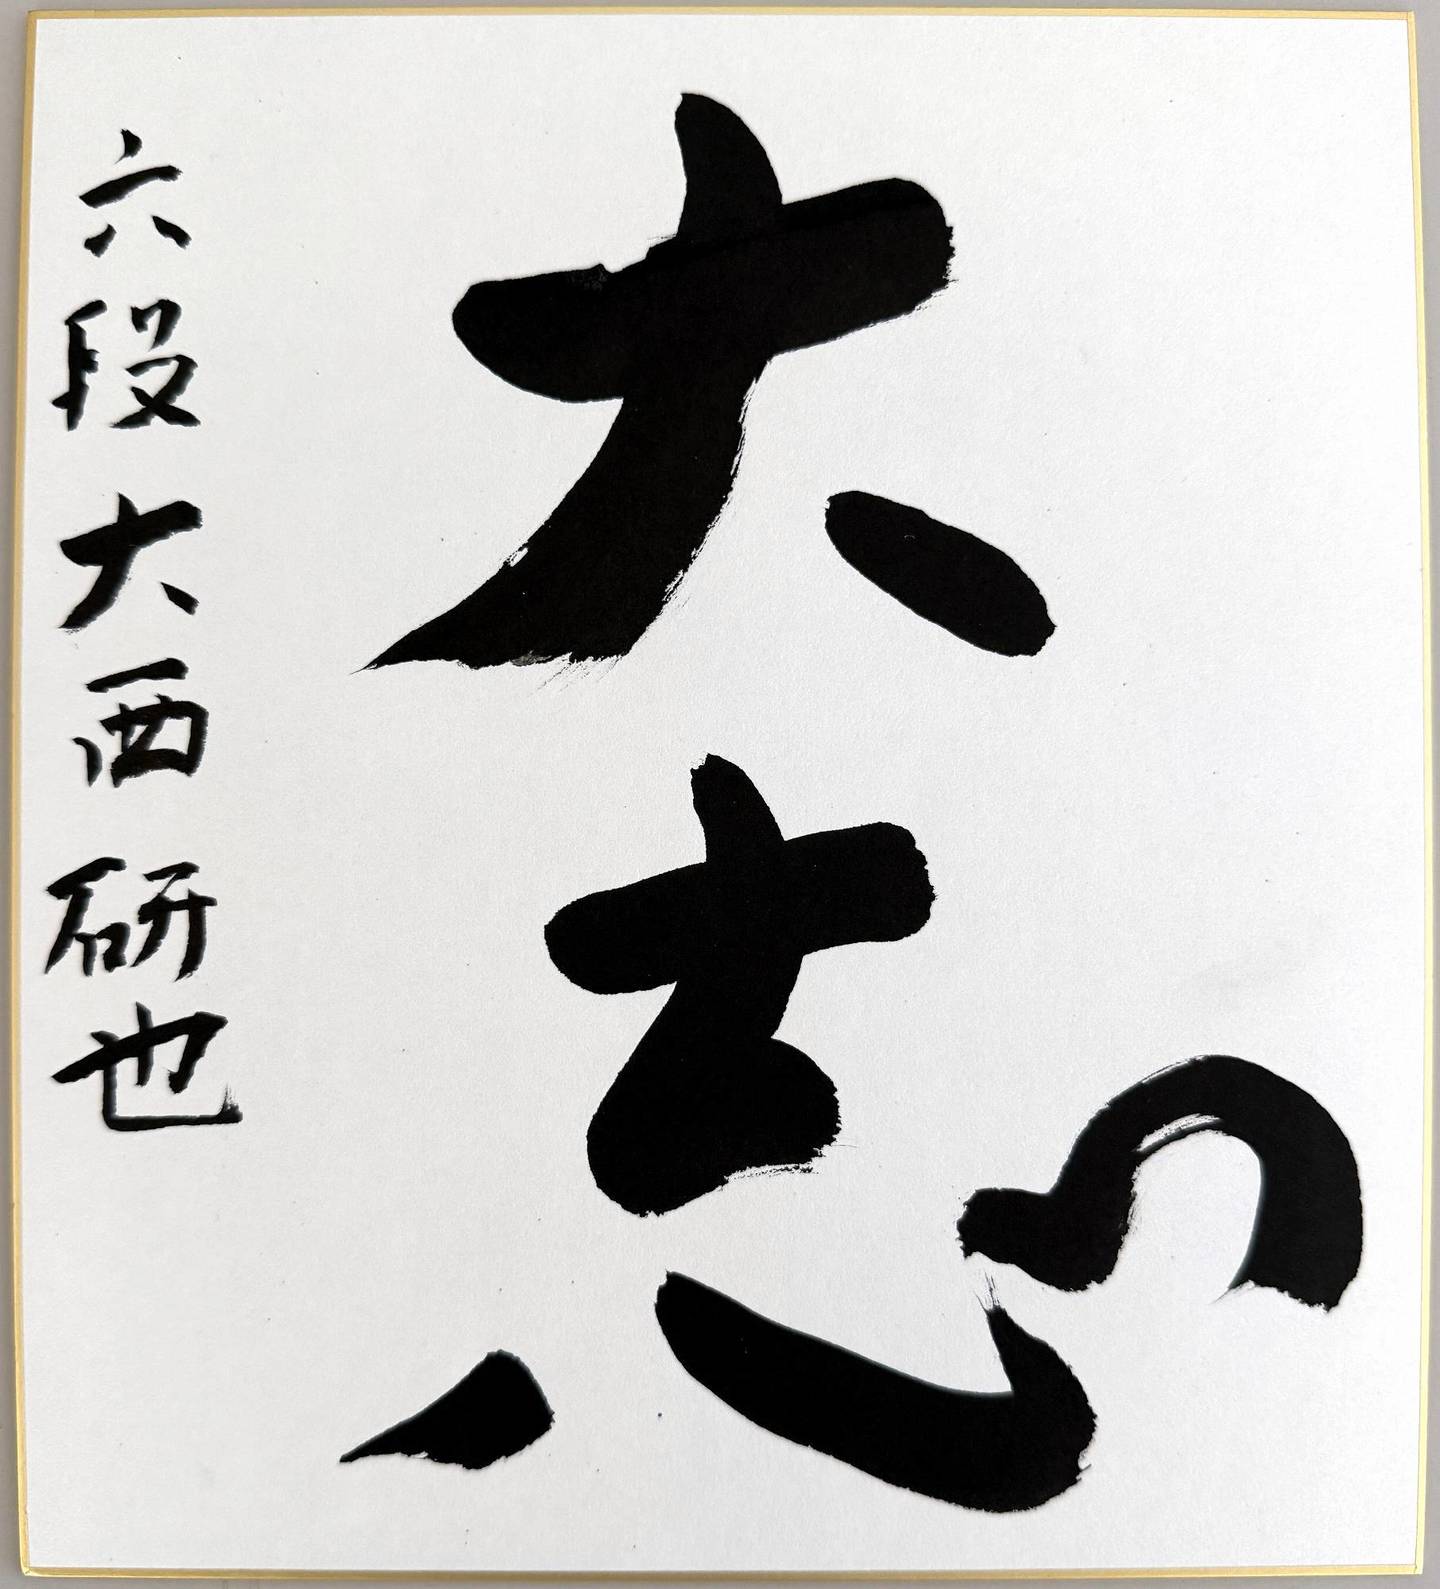 大志
六段 大西 研也